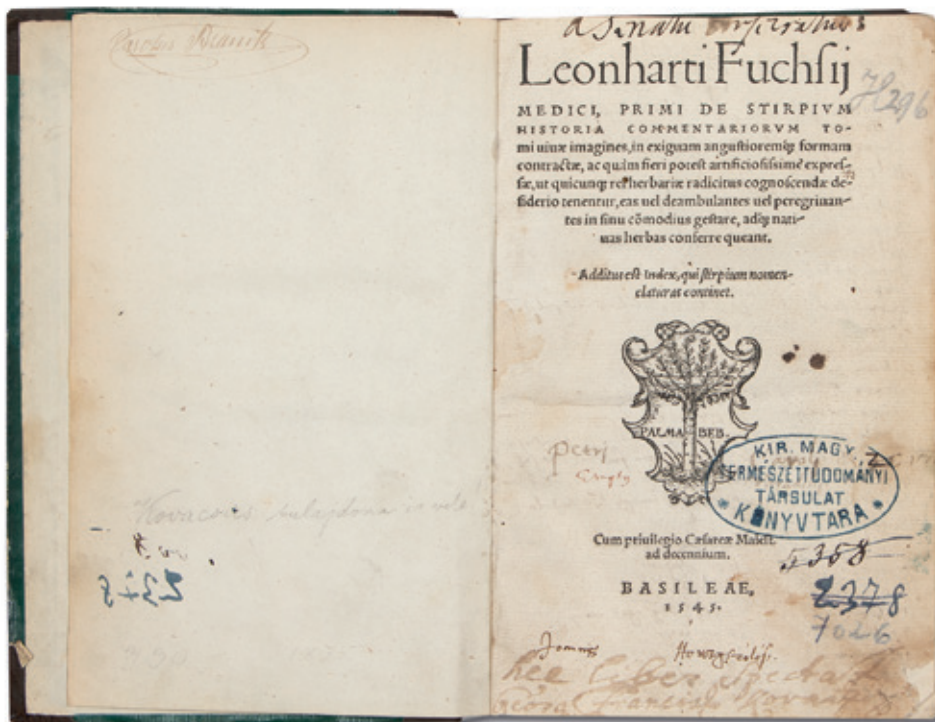 a Senatu
Leonharti Fuchſij
MEDICI, PRIMI DE STIRPIVM
HISTORIA COMMENTARIORVM TO-
mi uiuæ imagines, in exiguam anguſtioremq́; formam
contractæ, ac quàm fieri poteſt artificioſiſſimè expreſ-
ſæ, ut quicunq; rei herbariæ radicitus cognoſcendæ de-
ſiderio tenentur, eas uel deambulantes uel peregrinan-
tes in ſinu cõmodius geſtare, adq́; nati-
uas herbas conferre queant.
Additus eſt Index, qui ſtirpium nomen-
claturas continet.
H296
PALMA BEB.
petrj
KIR. MAGY.
TERMÉSZETTUDOMÁNYI
TÁRSULAT
KÖNYVTARA
Cum priuilegio Cæſareæ Maieſt.
ad decennium.
5358
BASILEAE,
1545.
2378
7026
hic liber
2378